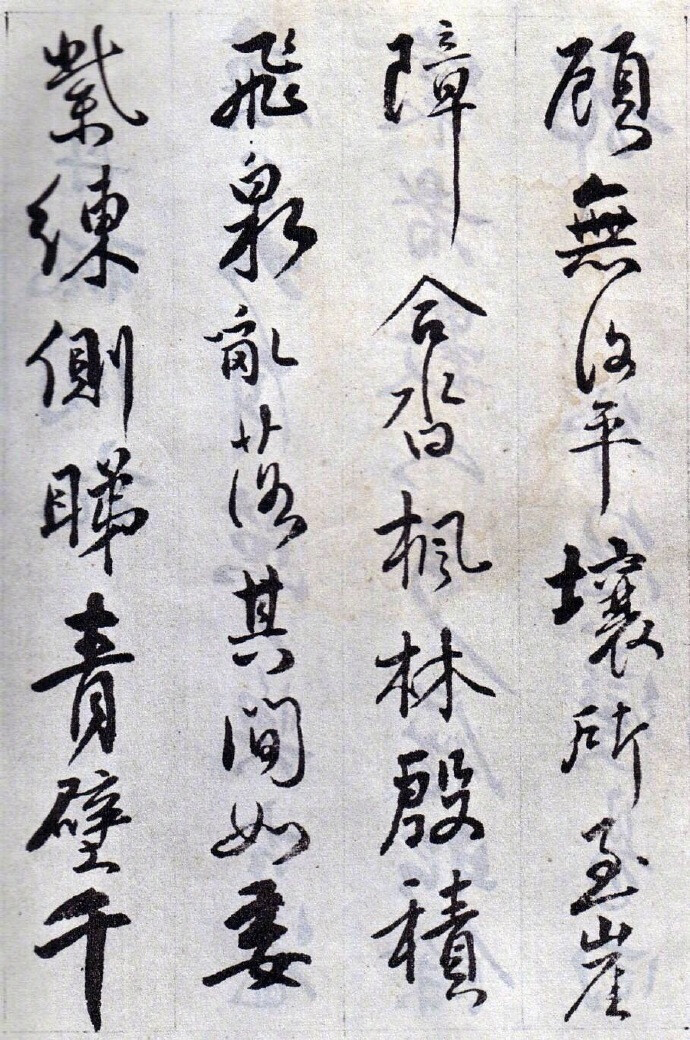 顧無復平壤所至崖
障合沓楓林殷積
飛泉亂落其間如委
縈練側睇青壁千